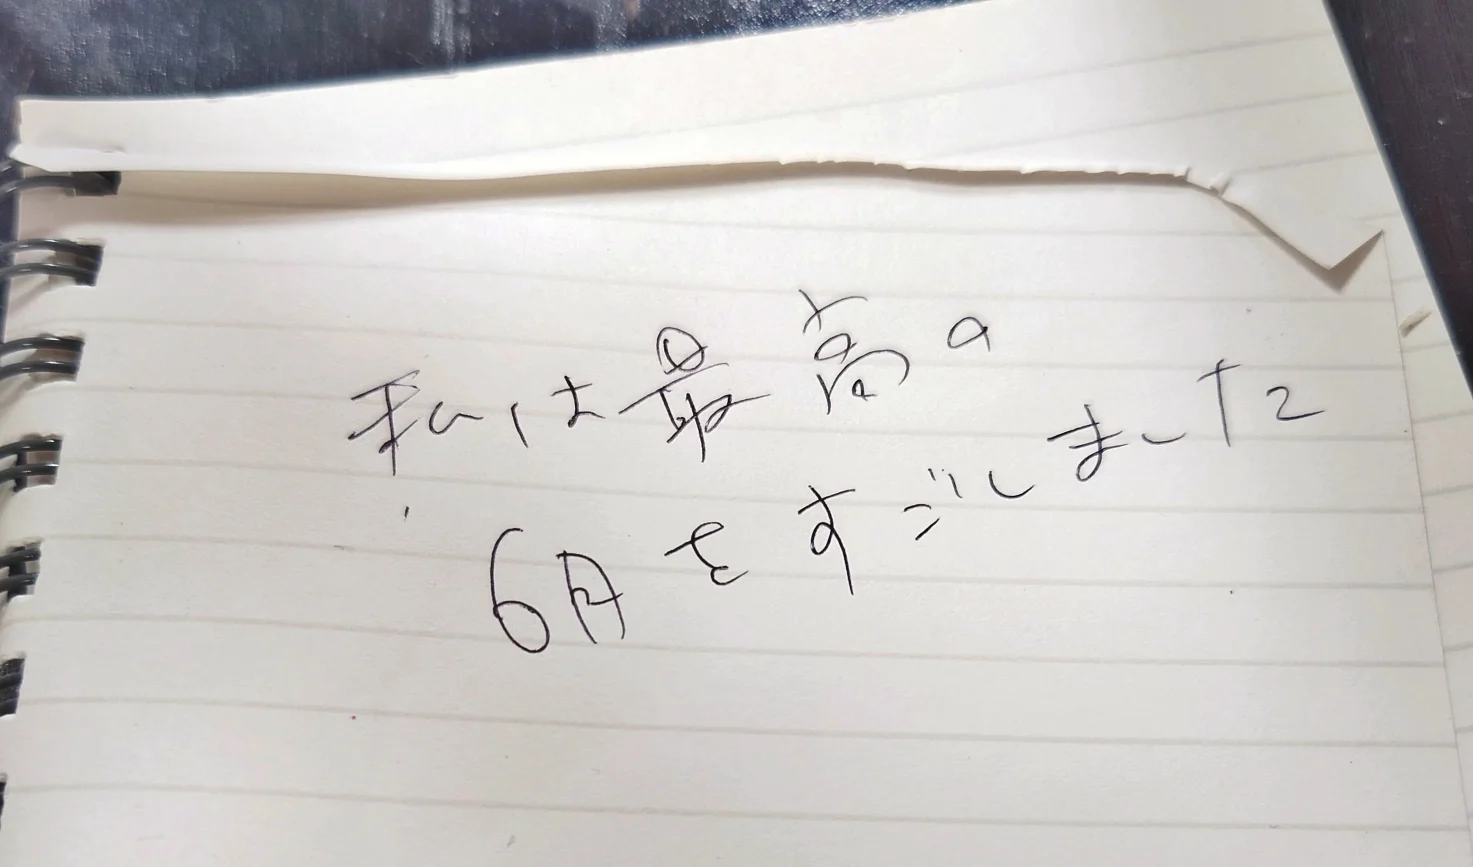 私は最高の
6月をすごしました